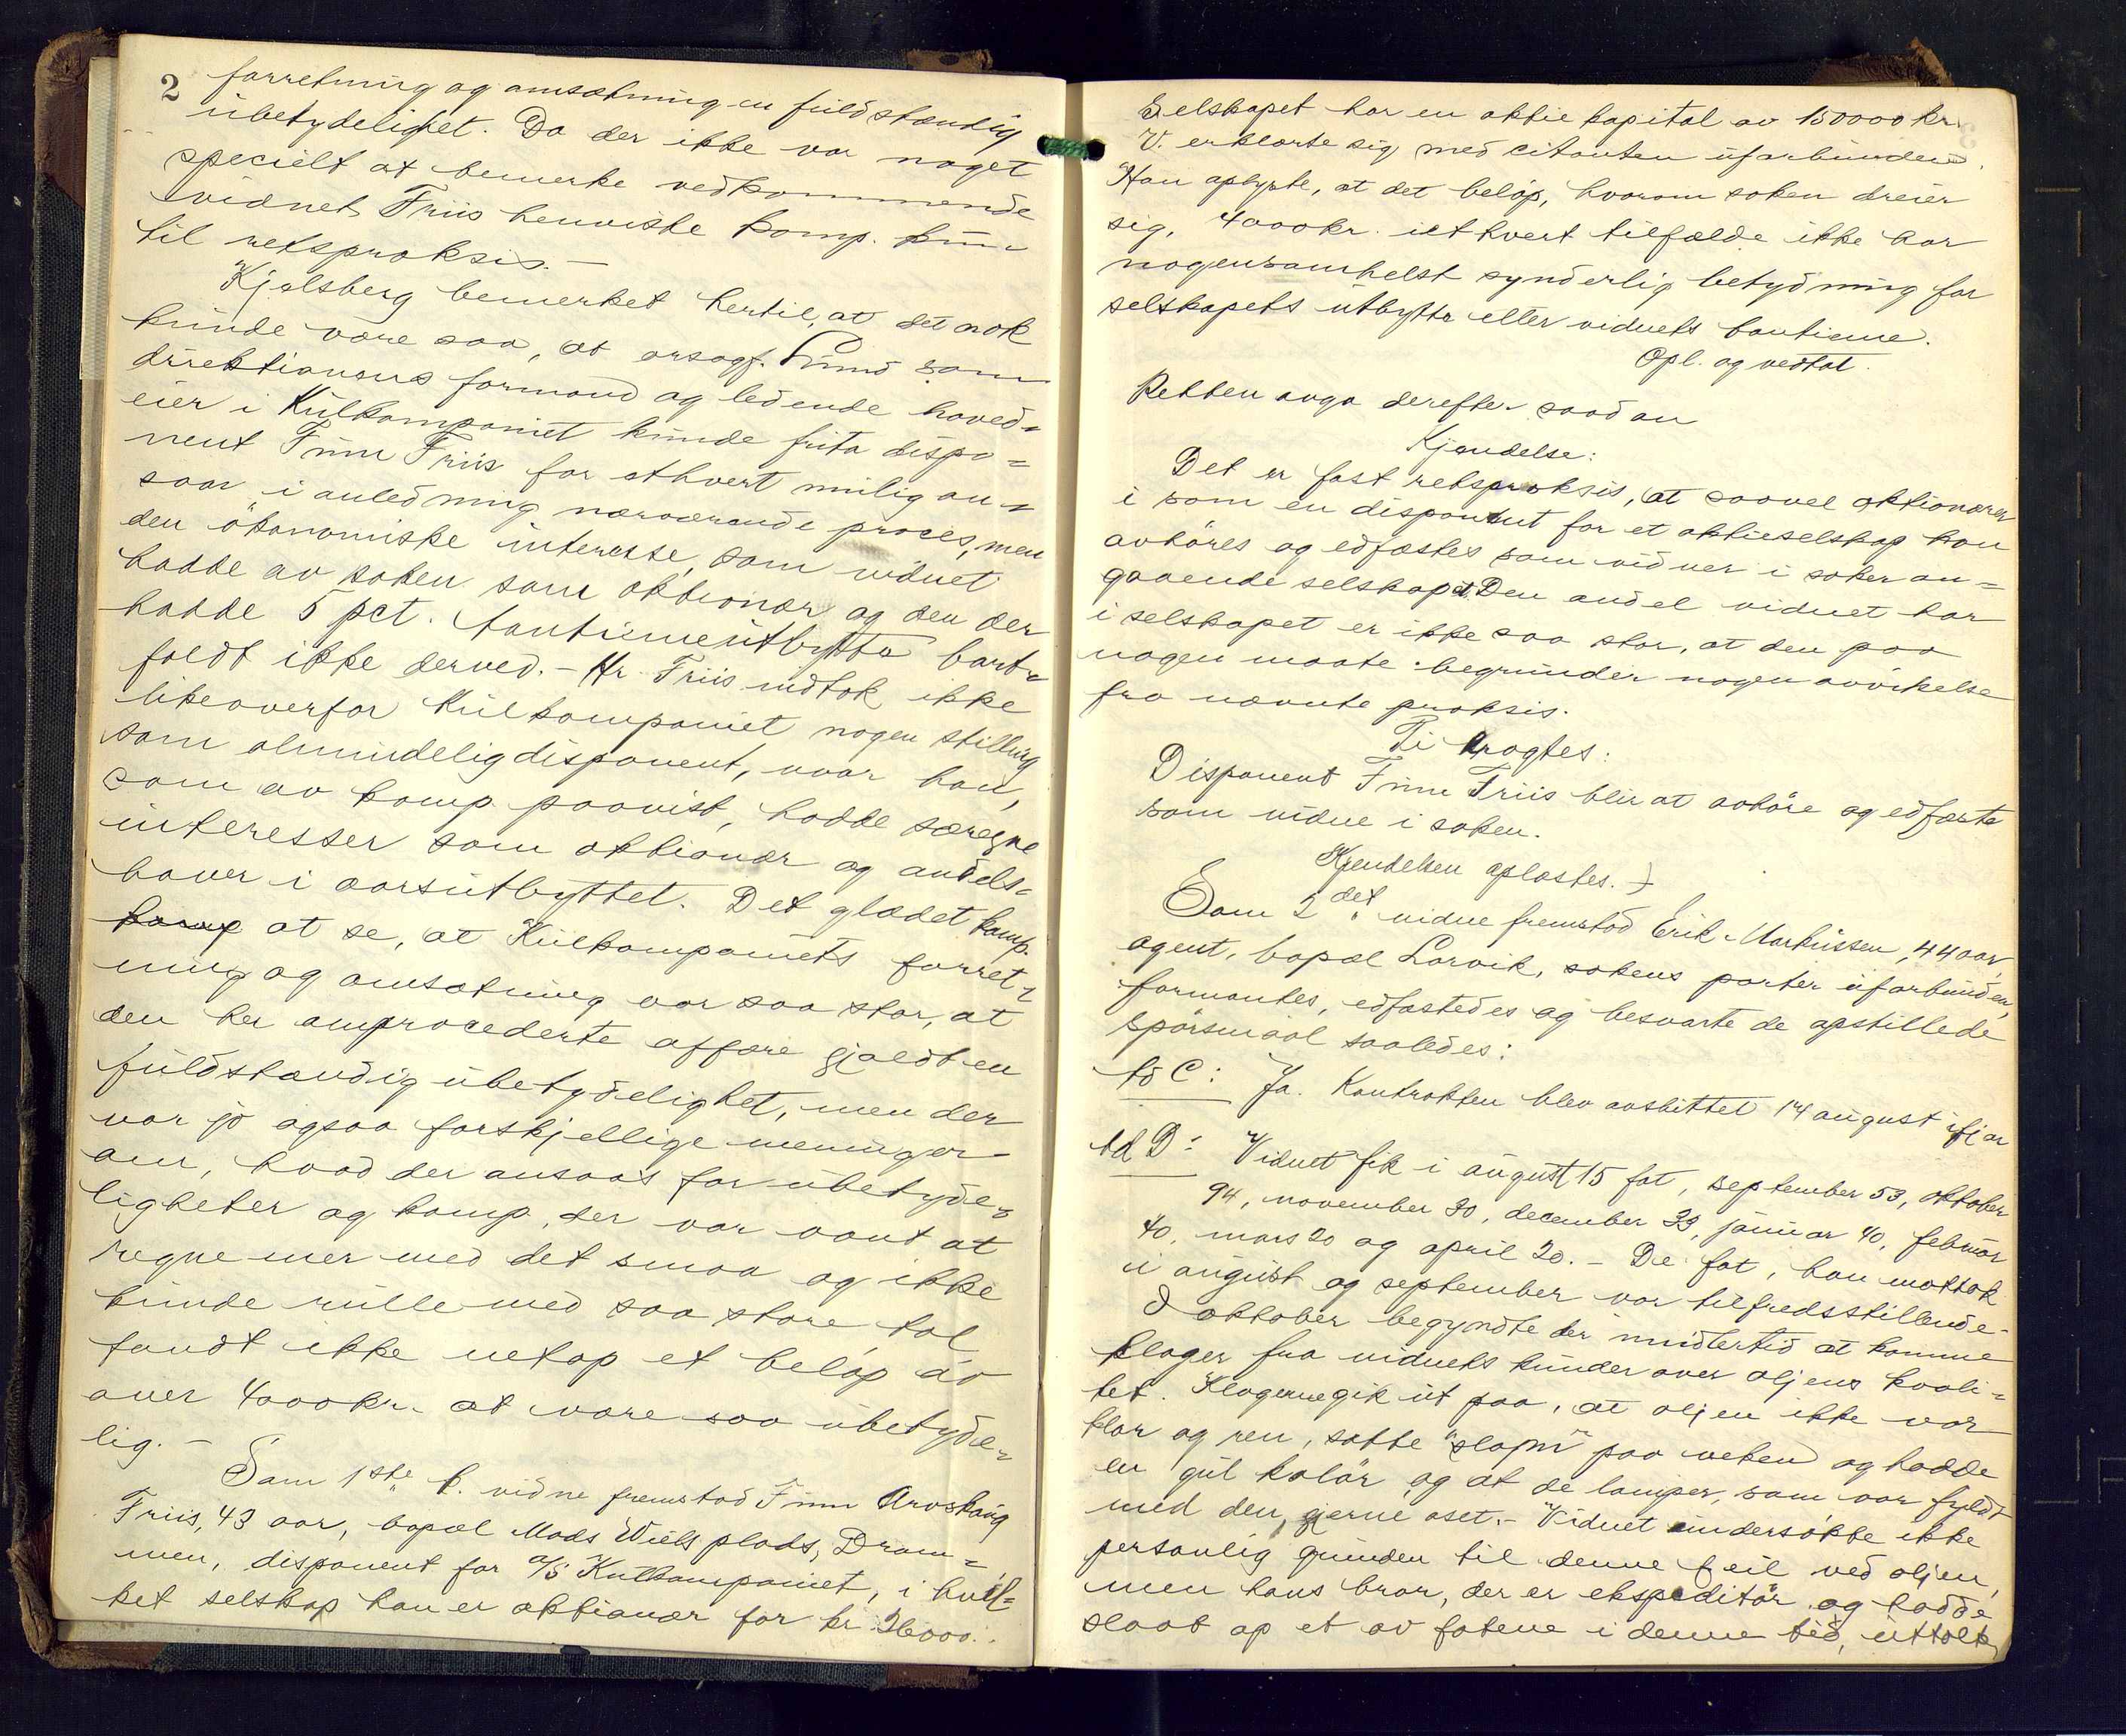 2
forretning og omsætning en fuldstændig
ubetydelighet. Da der ikke var noget
specielt at bemerke vedkommende
vidnet Friis henviste komp. kun
til retspraksis. —
Kjølsberg bemerket hertil, at det nok
kunde være saa, at orsagf. Lund som
direktionens formand og ledende hoved-
eier i Kulkompaniet kunde frita dispo-
nent Finn Friis for ethvert mulig an-
svar i anledning nærværende proces, men
den økonomiske interesse, som vidnet
hadde av saken som aktionær og den der
hadde 5 pct. tantiemeutbytte bort-
faldt ikke derved. – Hr. Friis indtok ikke
likeoverfor Kulkompaniet nogen stilling
som almindelig disponent, naar han,
som av komp. paavist, hadde særegne
interesser som aktionær og andels-
haver i aarsutbyttet. Det glædet komp.
komp at se, at Kulkompaniets forret-
ning og omsætning var saa stor, at
den her omprocederte affære gjaldt en
fuldstændig ubetydelighet, men der
var jo ogsaa forskjellige meninger
om, hvad der ansaas for ubetyde-
ligheter og komp. der var vant at
regne mer med det smaa og ikke
kunde rulle med saa store tal
fandt ikke netop et beløp av
over 4000 kr. at være saa ubetyde-
lig. –
Som 1ste k. vidne fremstod Finn Aroskaug
Friis, 43 aar, bopæl Mads Wiels plads, Dram-
men, disponent for A/S Kulkompaniet, i hvil-
ket selskap han er aktionær for kr. 26000.
Selskapet har en aktiekapital av 150000 kr.
V. erklærte sig med citanten uforbunden.
Han oplyste, at det beløp, hvorom saken dreier
sig, 4000 kr. i ethvert tilfælde ikke har
nogensomhelst synderlig betydning for
selskapets utbytte eller vidnets tantieme.
Opl. og vedtat.
Retten avga derefter saadan
Kjendelse:
Det er fast retspraksis, at saavel aktionærer
i som en disponent for et aktieselskap kan
avhöres og edfæstes som vidner i saker an-
gaaende selskapet. Den andel vidnet har
i selskapet er ikke saa stor, at den paa
nogen maate begrunder nogen avvikelse
fra nævnte praksis.
Ti kragtes:
Disponent Finn Friis blir at avhöre og edfæste
som vidne i saken.
Kjendelsen oplæstes. )
Som 2det vidne fremstod Erik Markussen, 44 aar,
agent, bopæl Larvik, sakens parter uforbunden,
formantes, edfæstedes og besvarte de opstillede
spörsmaal saaledes:
td C: Ja. Kontrakten blev avsluttet 14 august ifjor
td D: Vidnet fik i august 15 fat, september 53, oktober
94, november 30, december 39, januar 40, februar
40, mars 20 og april 20. – De fat, han mottok
i august og september var tilfredsstillende.
I oktober begyndte der imidlertid at komme
klager fra vidnets kunder over oljens kvali-
tet. Klagerne gik ut paa, at oljen ikke var
klar og ren, satte "slam" paa veken og hadde
en gul kolör og at de lamper, som var fyldt
med den, gjerne oset. – Vidnet undersökte ikke
personlig grunden til denne feil ved oljen,
men hans bror, der er ekspeditör og hadde
slaat op et av fatene i denne tid, uttalte,